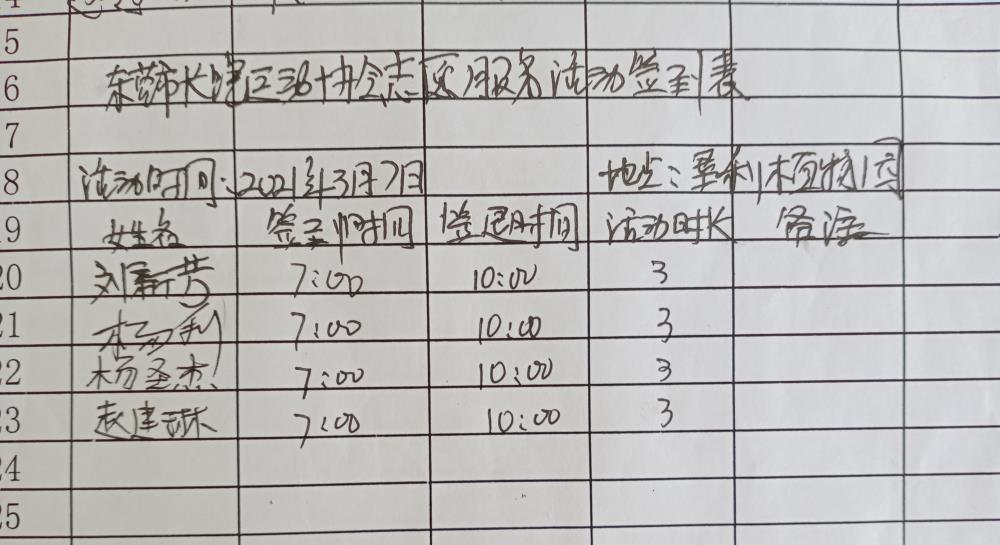 5
6 东莞市长跑运动协会志愿服务活动签到表
7
8 活动时间:2021年3月7日 地点:
19 姓名 签到时间 签退时间 活动时长 备注
20 刘新芳 7:00 10:00 3
21 杨利 7:00 10:00 3
22 杨圣杰 7:00 10:00 3
23 赵建琳 7:00 10:00 3
24
25